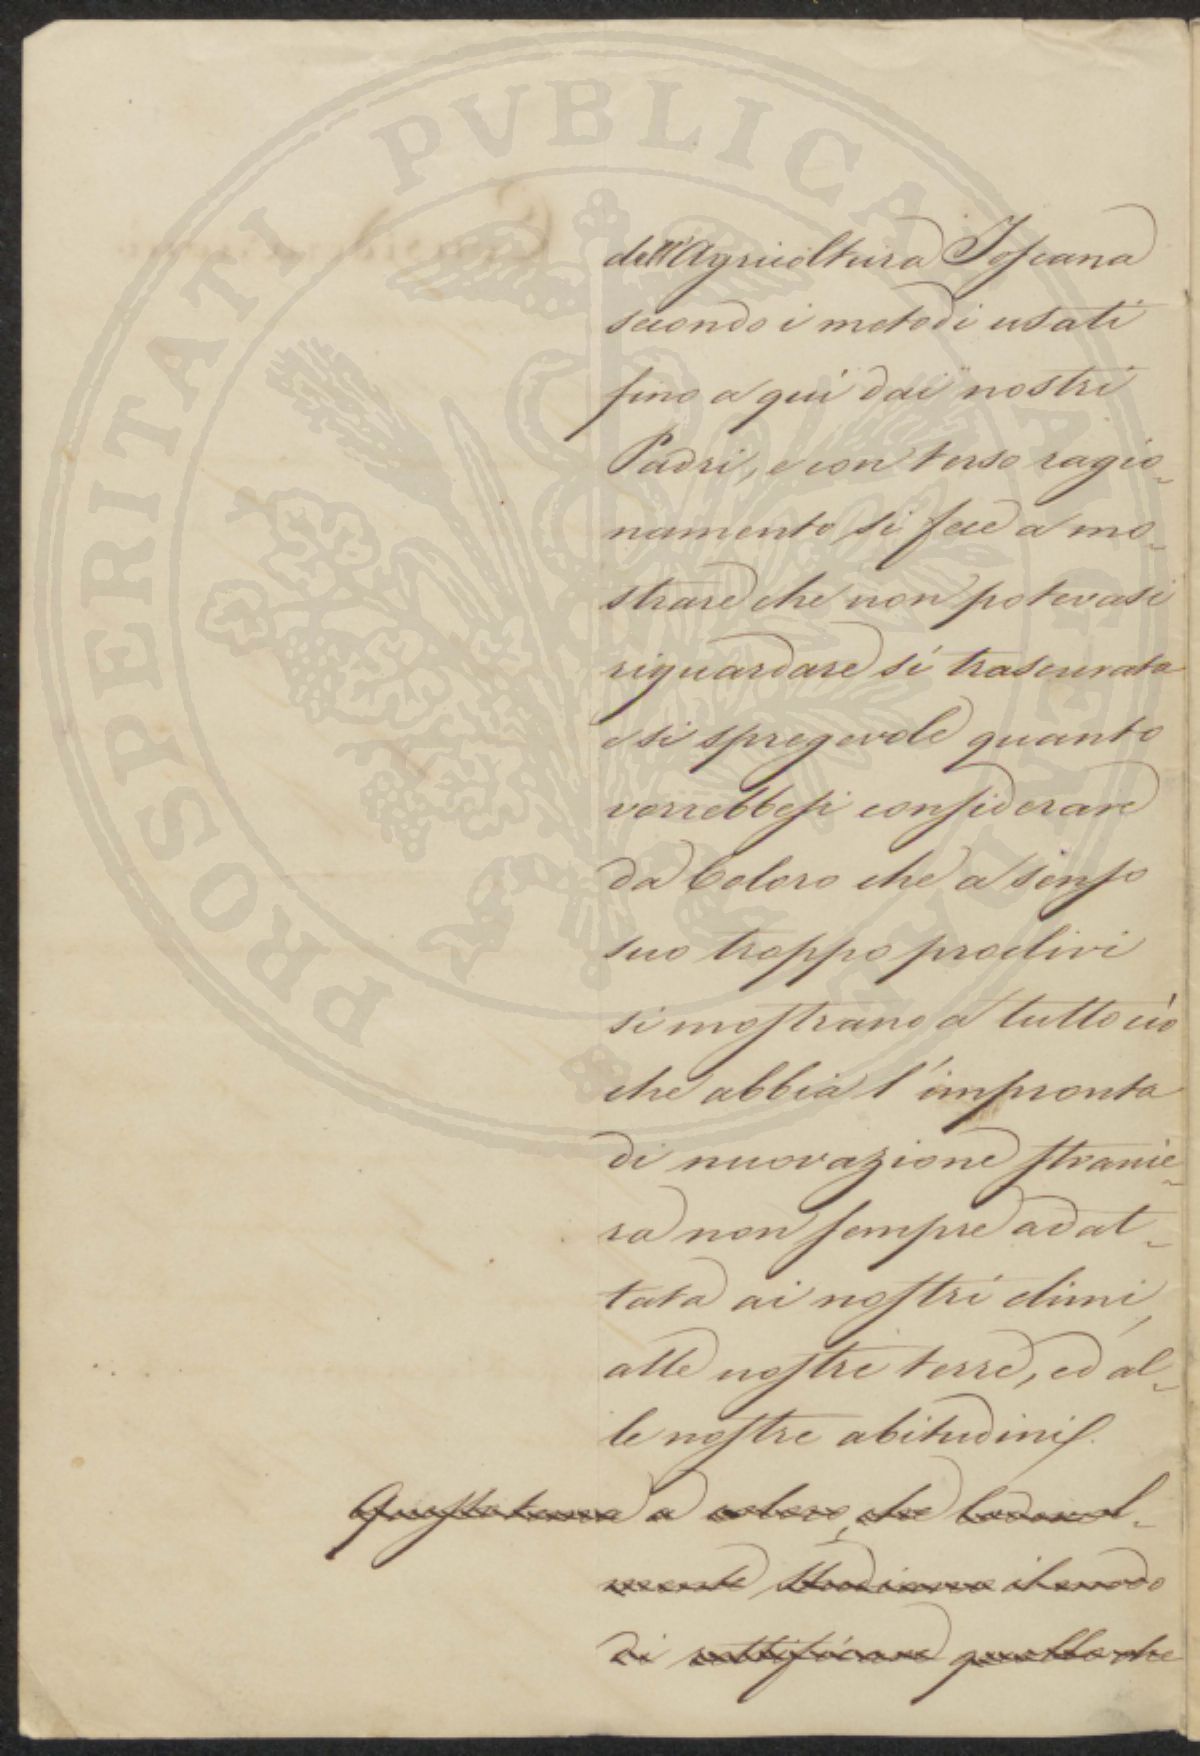 PROSPERITATI PVBLICAE AVGENDAE
dell'Agricoltura Toscana
secondo i metodi usati
fino a quí dai nostri
Padri, e con terso ragio-
namento si fece a mo-
strare che non potevasi
riguardare sí trascurata
e sí spregevole quanto
vorrebbesi considerare
da Coloro che a senso
suo troppo proclivi
si mostrano a tutto ciò
che abbia l'impronta
di nuovazione stranie-
ra non sempre adat-
tata ai nostri climi,
alle nostre terre, ed al-
le nostre abitudini.
a coloro, che lodevol-
mente studiano il modo
di rettificare quello che